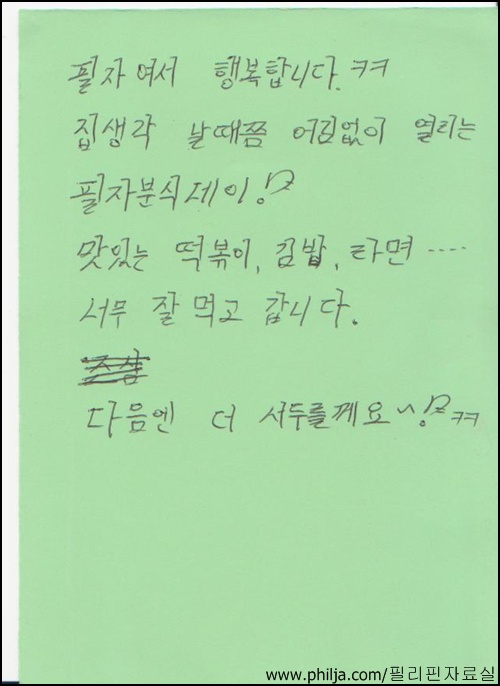 필자여서 행복합니다. ㅋㅋ
집생각 날때쯤 어김없이 열리는
필자분식데이!
맛있는 떡볶이, 김밥, 라면 ....
너무 잘 먹고 갑니다.
다음엔 더 서두를께요~! ㅋㅋ
www.philja.com/필리핀자료실